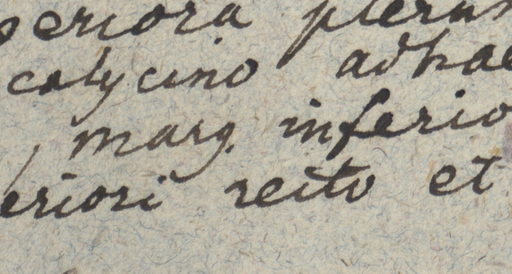 periora plerum
calycino adhae
, marg. inferio
eriori recto et